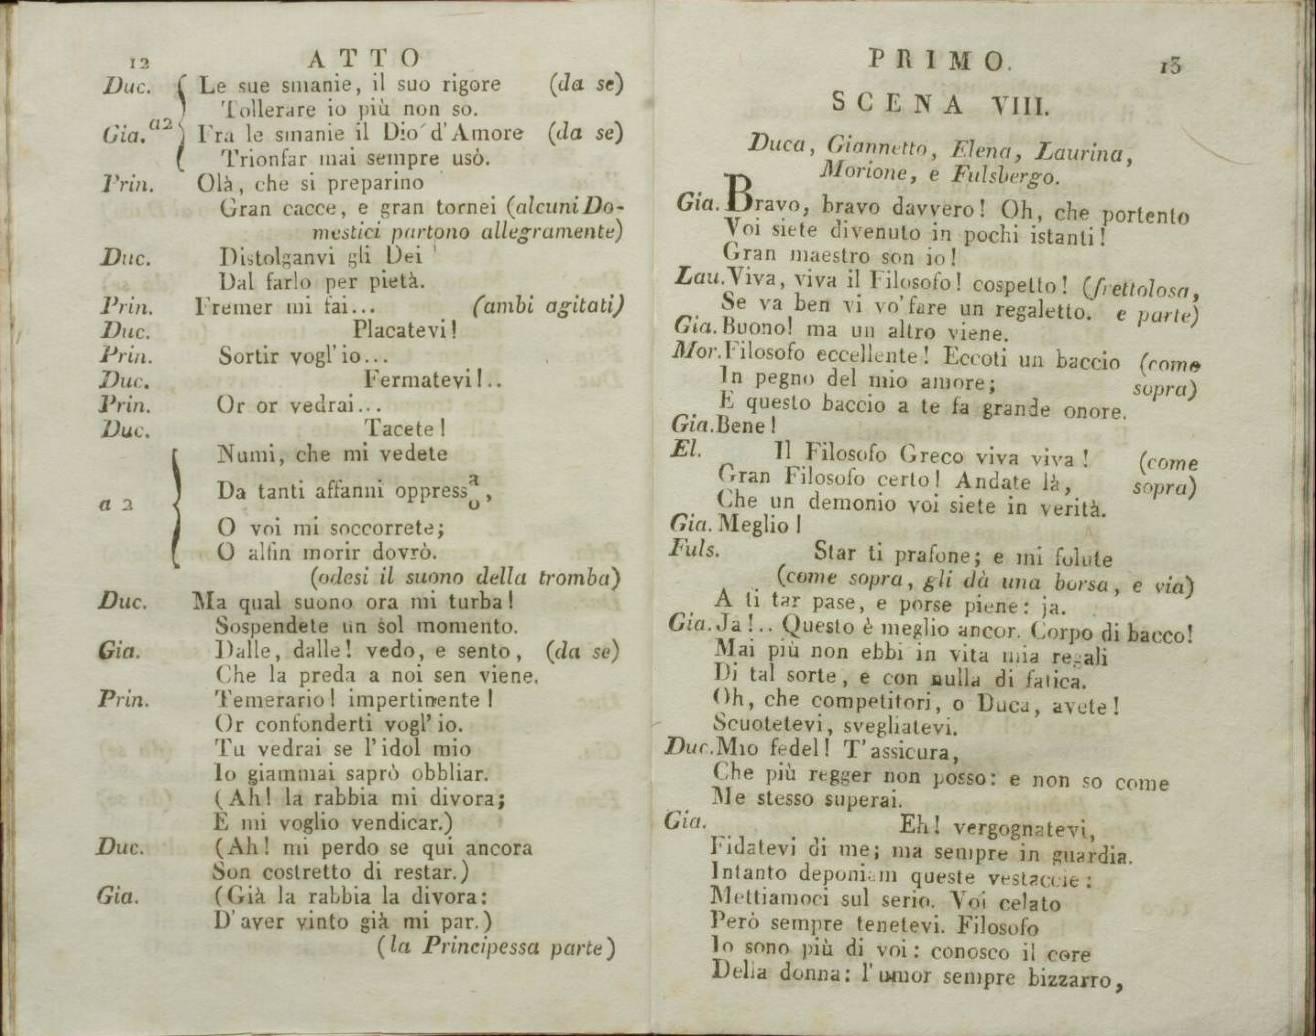 12 ATTO
Duc. Le sue smanie, il suo rigore (da se)
Tollerare io più non so.
a2
Gia. Fra le smanie il Dio d'Amore (da se)
Trionfar mai sempre usò.
Prin. Olà, che si preparino
Gran cacce, e gran tornei (alcuni Do-
mestici partono allegramente)
Duc. Distolganvi gli Dei
Dal farlo per pietà.
Prin. Fremer mi fai... (ambi agitati)
Duc. Placatevi!
Prin. Sortir vogl'io...
Duc. Fermatevi!..
Prin. Or or vedrai...
Duc. Tacete!
Numi, che mi vedete
a 2 Da tanti affanni oppress a/o,
O voi mi soccorrete;
O alfin morir dovrò.
(odesi il suono della tromba)
Duc. Ma qual suono ora mi turba!
Sospendete un sol momento.
Gia. Dalle, dalle! vedo, e sento, (da se)
Che la preda a noi sen viene.
Prin. Temerario! impertinente!
Or confonderti vogl'io.
Tu vedrai se l'idol mio
Io giammai saprò obbliar.
(Ah! la rabbia mi divora;
E mi voglio vendicar.)
Duc. (Ah! mi perdo se qui ancora
Son costretto di restar.)
Gia. (Già la rabbia la divora:
D'aver vinto già mi par.)
(la Principessa parte)
PRIMO. 13
SCENA VIII.
Duca, Giannetto, Elena, Laurina,
Morione, e Fulsbergo.
Gia. Bravo, bravo davvero! Oh, che portento
Voi siete divenuto in pochi istanti!
Gran maestro son io!
Lau. Viva, viva il Filosofo! cospetto! (frettolosa,
Se va ben vi vo'fare un regaletto. e parte)
Gia. Buono! ma un altro viene.
Mor. Filosofo eccellente! Eccoti un baccio (come
In pegno del mio amore; sopra)
E questo baccio a te fa grande onore.
Gia. Bene!
El. Il Filosofo Greco viva viva! (come
Gran Filosofo certo! Andate là, sopra)
Che un demonio voi siete in verità.
Gia. Meglio!
Fuls. Star ti prafone; e mi folute
(come sopra, gli dà una borsa, e via)
A ti tar pase, e porse piene: ja.
Gia. Ja!.. Questo è meglio ancor. Corpo di bacco!
Mai più non ebbi in vita mia regali
Di tal sorte, e con nulla di fatica.
Oh, che competitori, o Duca, avete!
Scuotetevi, svegliatevi.
Duc. Mio fedel! T'assicura,
Che più regger non posso: e non so come
Me stesso superai.
Gia. Eh! vergognatevi,
Fidatevi di me; ma sempre in guardia.
Intanto deponiam queste vestaccie:
Mettiamoci sul serio. Voi celato
Però sempre tenetevi. Filosofo
Io sono più di voi: conosco il core
Della donna: l'umor sempre bizzarro,